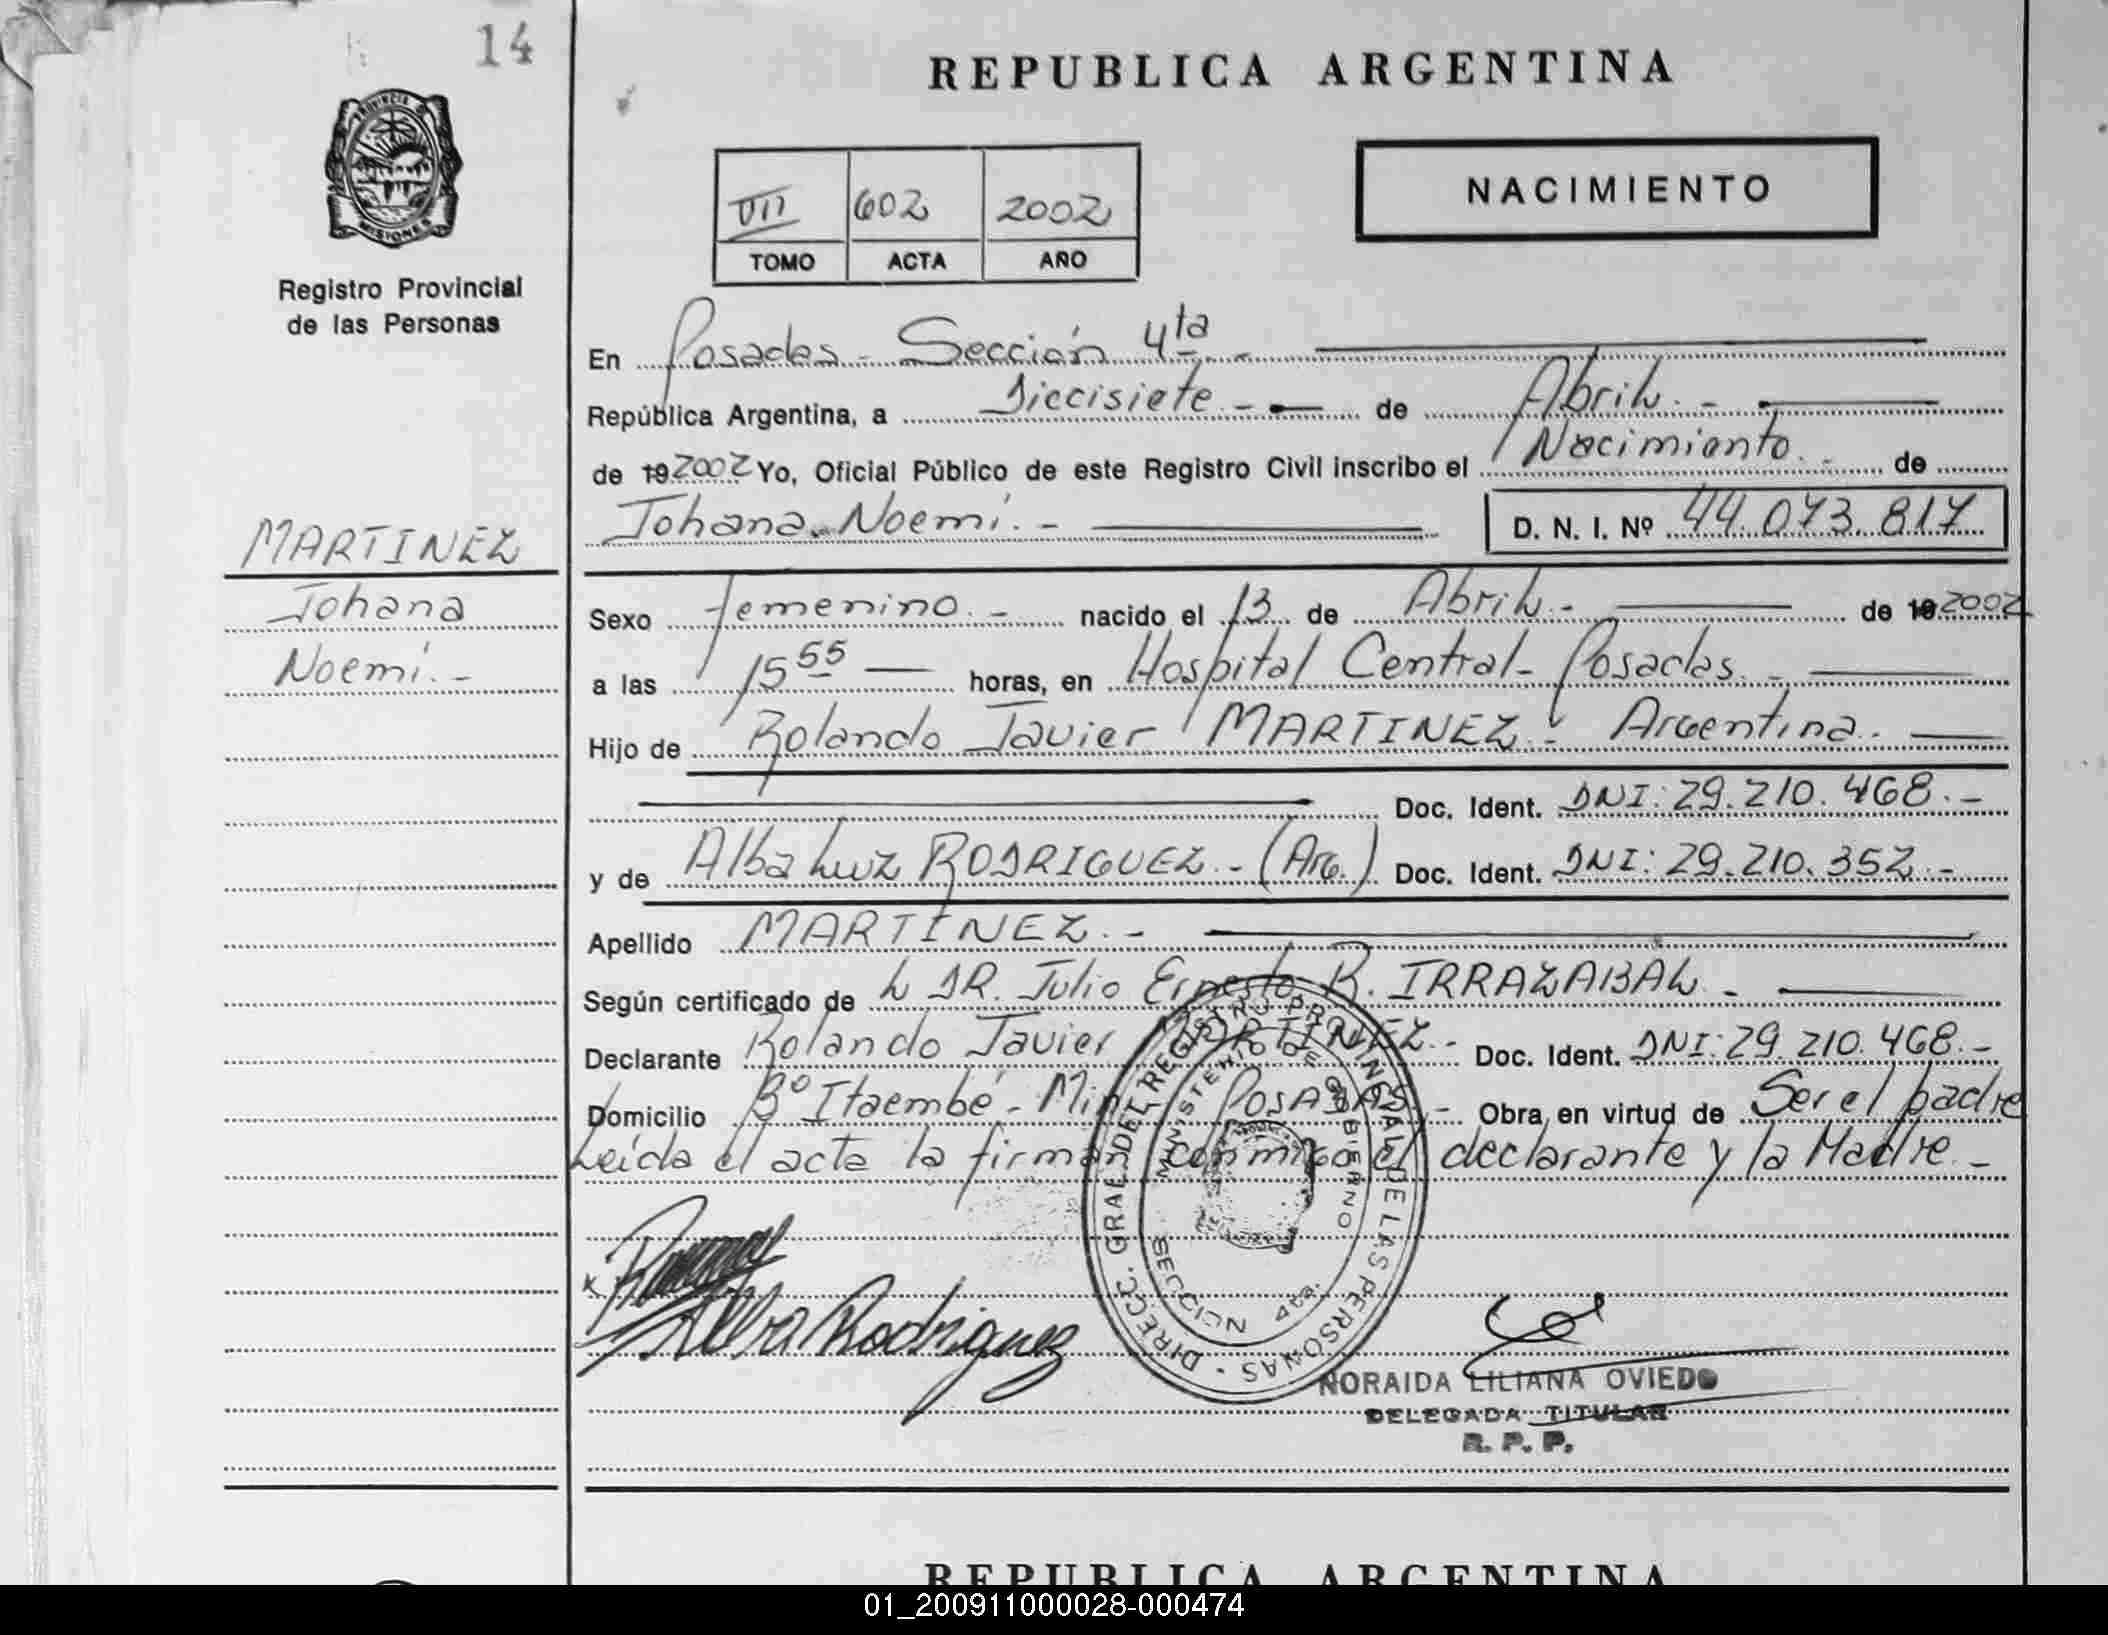 14
REPUBLICA ARGENTINA
PROVINCIA DE
MISIONES
Registro Provincial
de las Personas
VII 602 2002
TOMO ACTA AÑO
NACIMIENTO
En Posadas - Sección 4ta -
República Argentina, a Diecisiete - de Abril. -
de 19 2002 Yo, Oficial Público de este Registro Civil inscribo el Nacimiento. - de
Johana Noemí. - D. N. I. Nº 44.073.817
MARTINEZ
Johana
Noemí. -
Sexo femenino. - nacido el 13 de Abril. - de 19 2002
a las 15 55 horas, en Hospital Central - Posadas. -
Hijo de Rolando Javier MARTINEZ - Argentina.
Doc. Ident. DNI: 29.210.468. -
y de Alba Luz RODRIGUEZ. - (Arg.) Doc. Ident. DNI: 29.210.352. -
Apellido MARTINEZ. -
Según certificado de L DR. Julio Ernesto R. IRRAZABAL -
Declarante Rolando Javier MARTINEZ. - Doc. Ident. DNI: 29.210.468. -
Domicilio Bº Itaembé - Miní POSADAS - Obra en virtud de Ser el padre
Leída el acta la firman conmigo el declarante y la Madre. -
DIRECC. GRAL. DEL REGISTRO PROVINCIAL DE LAS PERSONAS -
MINISTERIO DE GOBIERNO
SECCION 4ta.
Alba Rodriguez
NORAIDA LILIANA OVIEDO
DELEGADA TITULAR
R. P. P.
REPUBLICA ARGENTINA
01_200911000028-000474